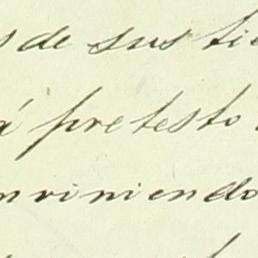 s de sus tie
á pretesto
nviniendo